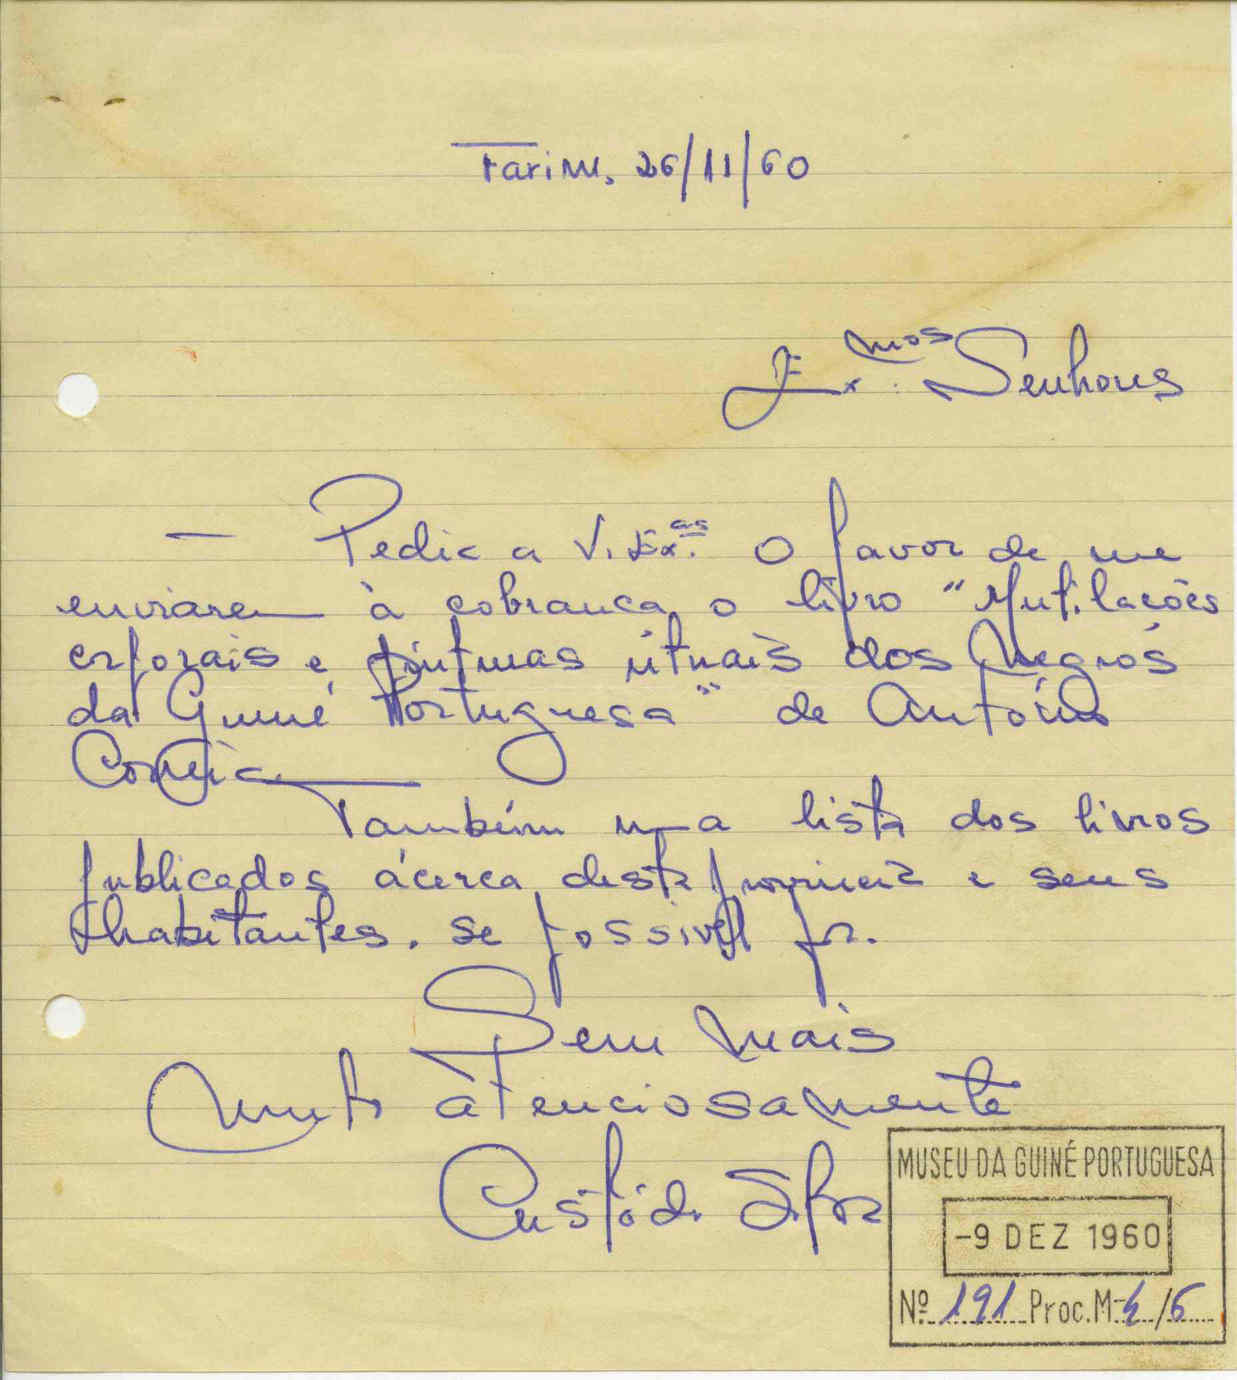 Farim, 26/11/60
Ex.mos Senhores
— Pedia a V. Ex.as o favor de me
enviarem à cobrança o livro "Mutilações
corporais e pinturas rituais dos Negros
da Guiné Portuguesa" de António
Correia
Também uma lista dos livros
publicados ácerca desta provincia e seus
habitantes, se possivel for.
Sem mais
Muito atenciosamente
Custódio Silva
MUSEU DA GUINÉ PORTUGUESA
-9 DEZ 1960
Nº 191 Proc. M-4/6